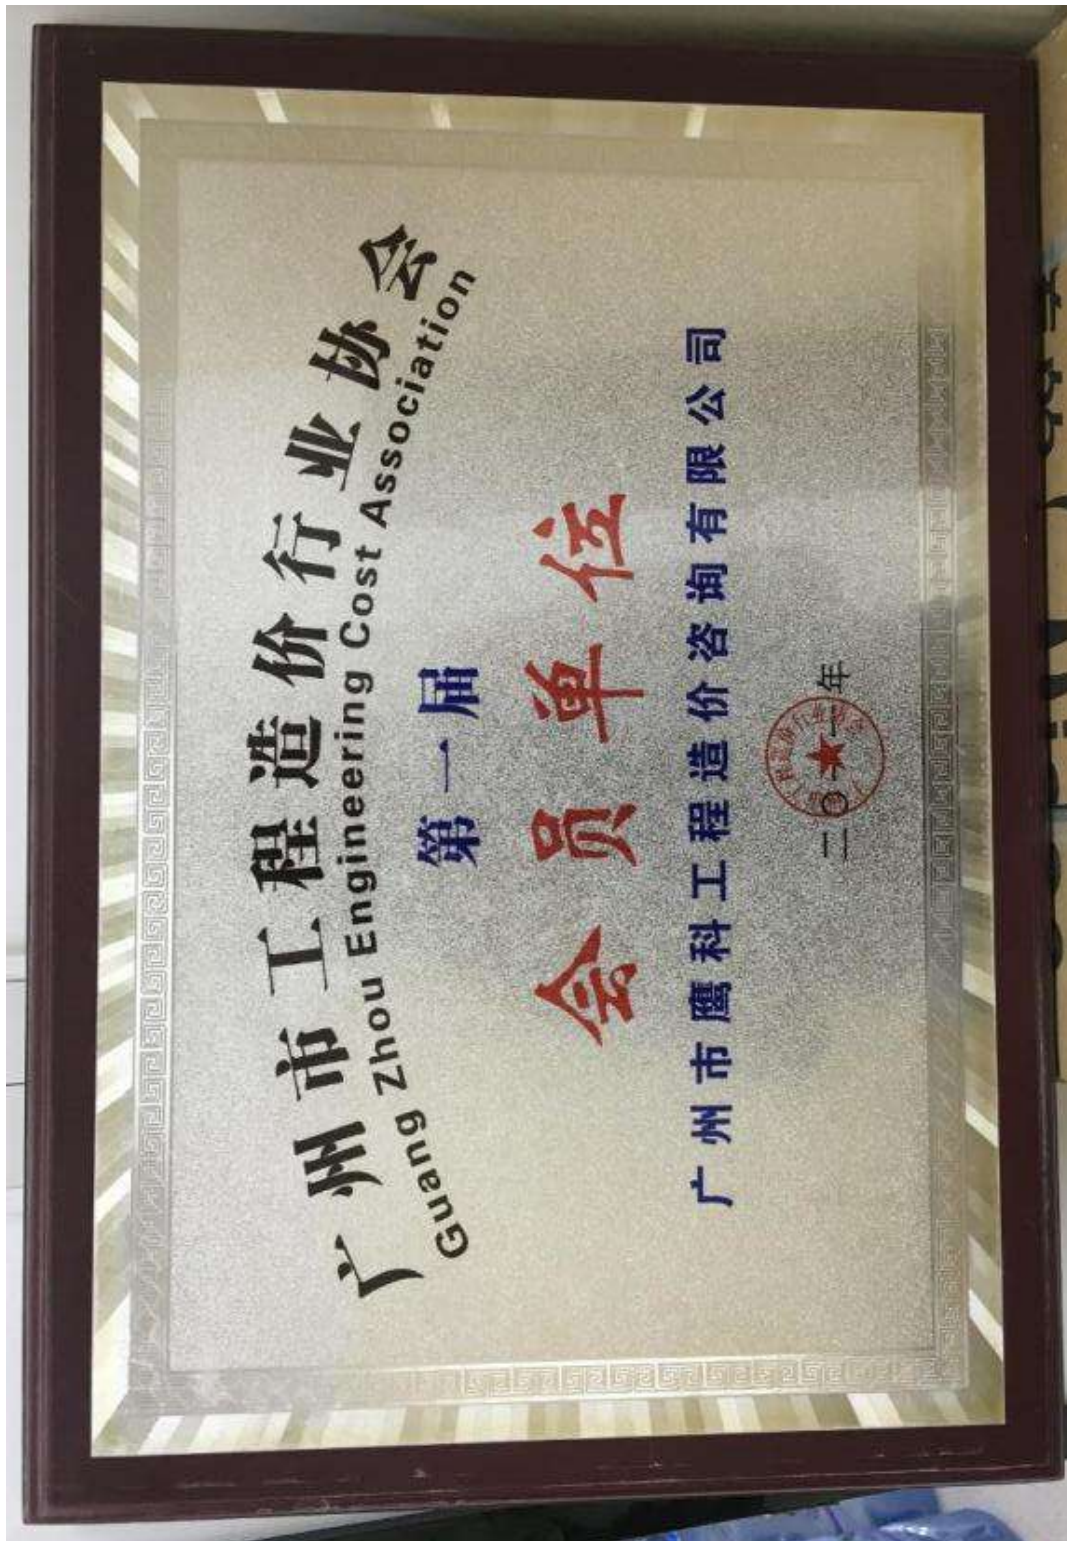 广州市工程造价行业协会
Guang Zhou Engineering Cost Association
第一届
会员单位
广州市鹰科工程造价咨询有限公司
二〇一一年